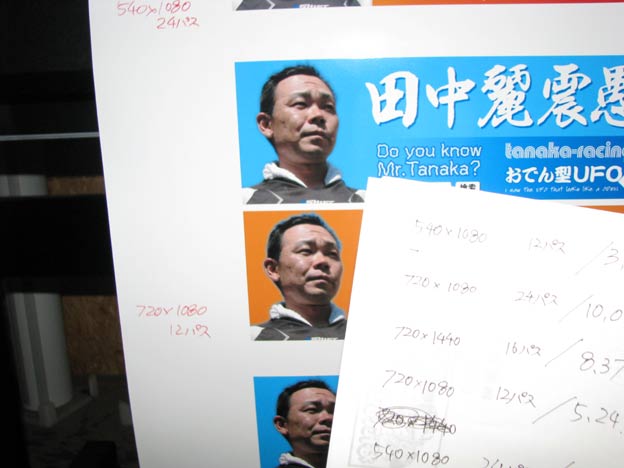 540×1080
24パス
田中麗震愚
Do you know
Mr.Tanaka?
検索
tanaka-racin
おでん型UFO
i saw the UFO that looks like a oden!
720×1080
12パス
540×1080 12パス /3,
720×1080 24パス /10,0
720×1440 16パス /8,37
720×1080 12パス /5,24,
540×1080